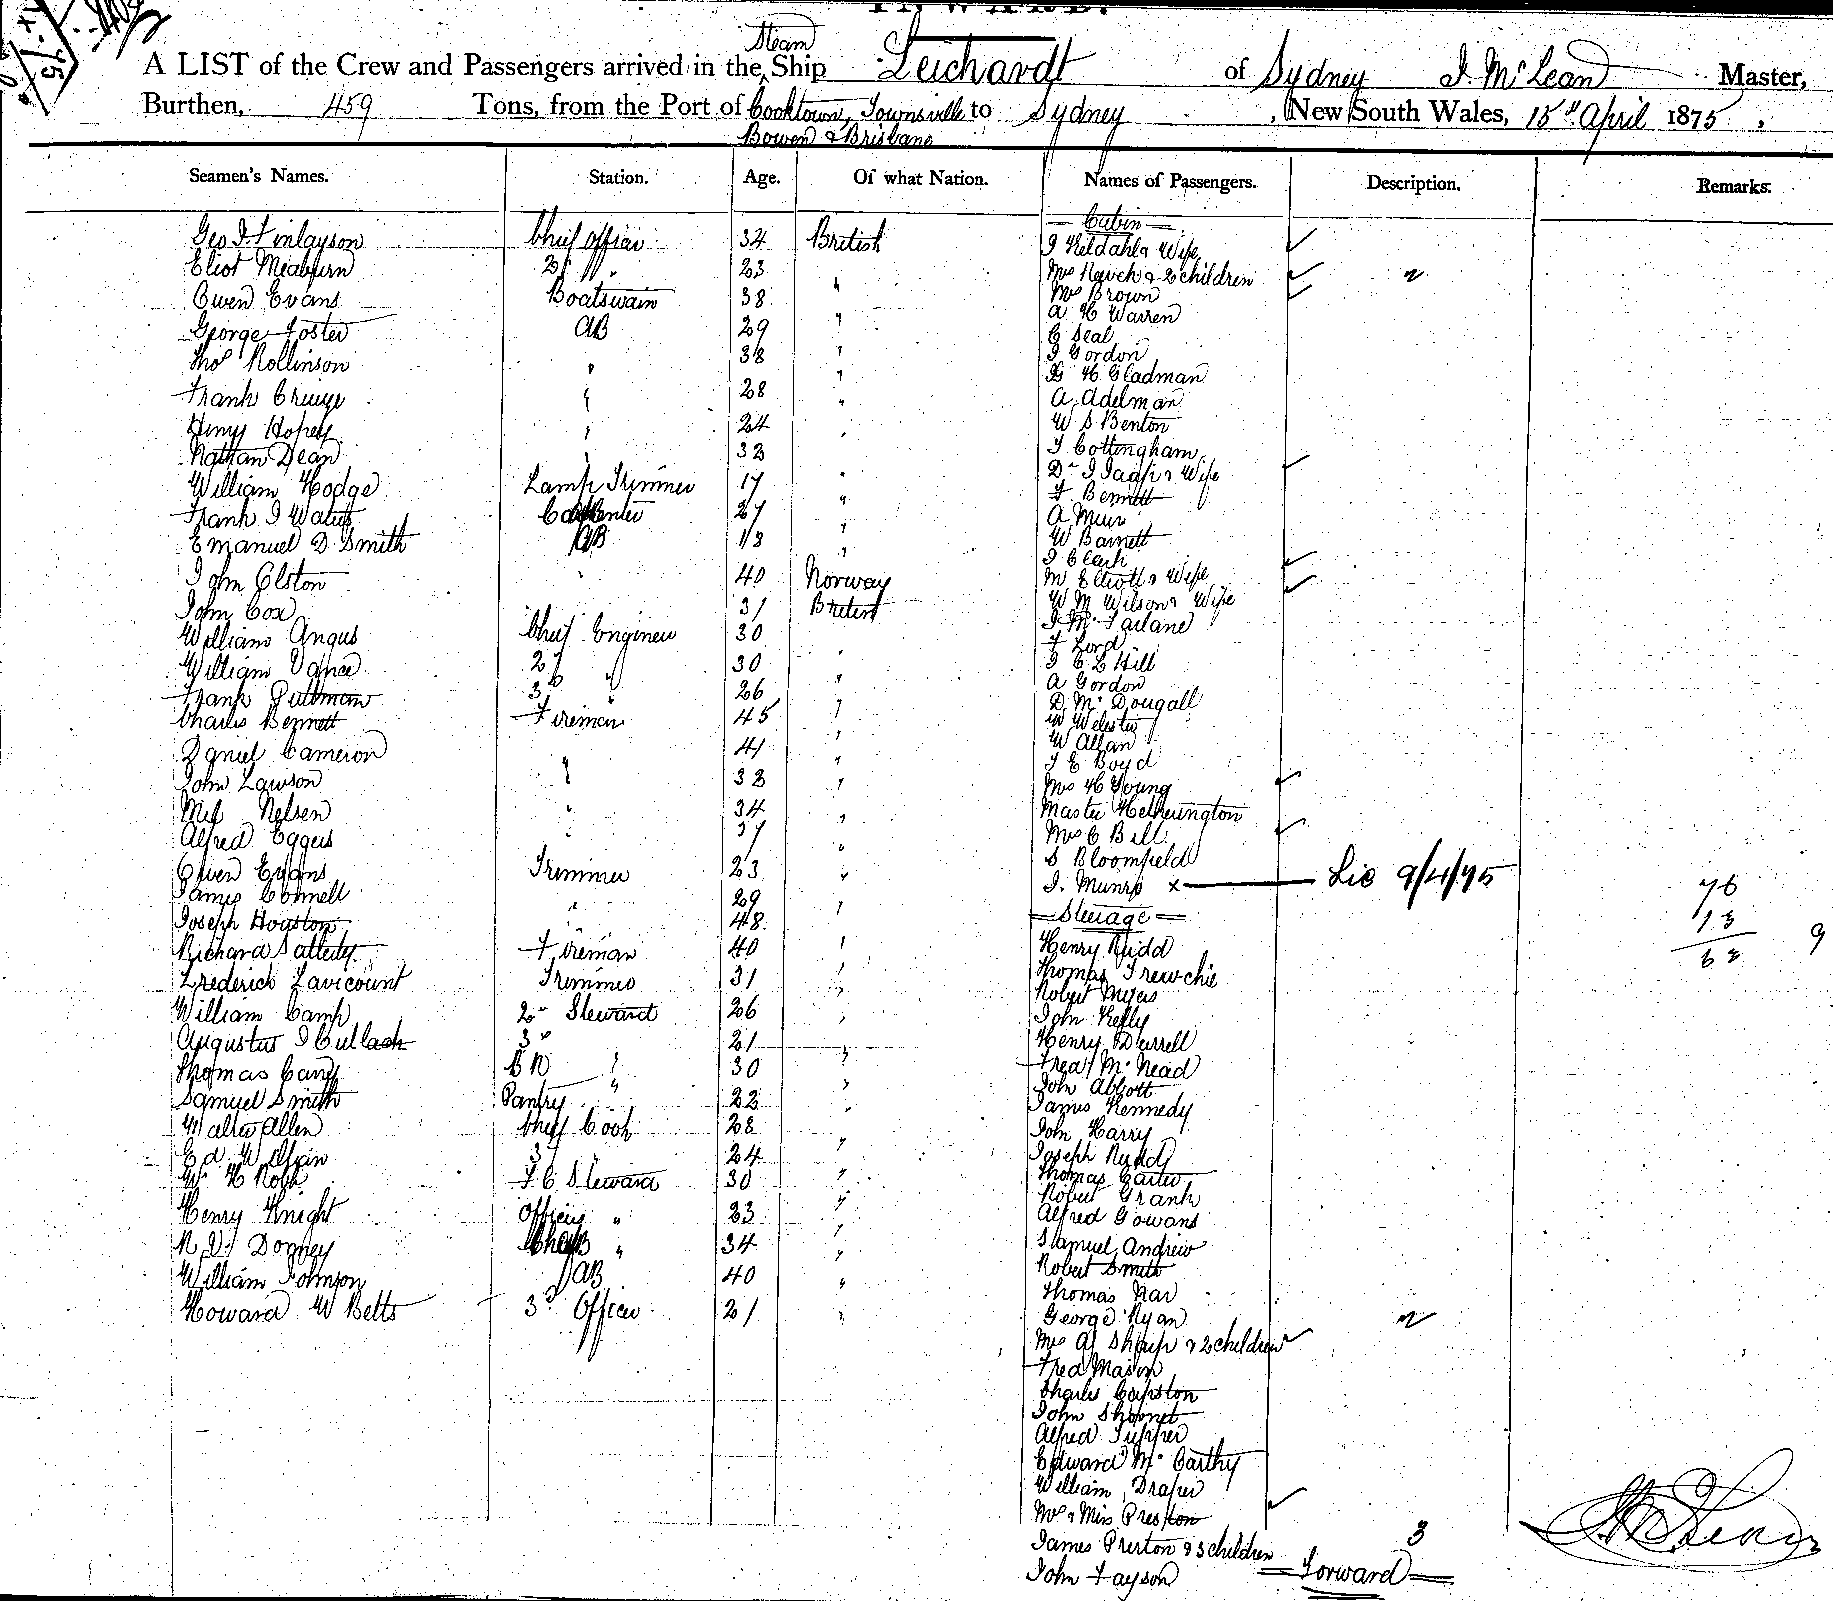 Steam
A LIST of the Crew and Passengers arrived in the Ship Leichardt of Sydney J. McLean Master,
Burthen, 459 Tons, from the Port of Cooktown, Townsville to Sydney, New South Wales, 15th April 1875,
Bowen & Brisbane
Seamen's Names. Station. Age. Of what Nation. Names of Passengers. Description. Remarks.
Cabin
Geo J Finlayson Chief Officer 34 British
J Keldahl & Wife
Eliot Meaburn 2d " 23
Mrs & 2 children
Owen Evans Boatswain 38 "
Mrs Brown
A H Warren
George Foster AB 29 "
C Seal
Thos Rollinson " 38 "
J Gordon
H Gladman
Frank " 28 "
A Adelman
Henry " 24 "
W S Benton
Nathan Dean " 33 "
J Cottingham
Dr J & Wife
William Hodge Lamp Trimmer 17 "
F Bennett
Frank J Carpenter 27 "
A Muir
Emanuel D Smith AB 18 "
W Barnett
J Clark
John Olston " 40 Norway
M Elliott & Wife
John Cox 31 British
W M Wilson & Wife
J McFarlane
William Angus Chief Engineer 30
F Lord
William Vance 2d " 30 "
J C L Hill
A Gordon
Frank 3d " 26 "
D McDougall
Charles Bennett Fireman 45 "
W Webster
W Allan
Daniel Cameron 41 "
J E Boyd
John Lawson " 33 "
Mrs H Young
Nelsen " 34 "
Master Hetherington
Alfred Eggers " 37 "
Mrs C Bell
S Bloomfield
Owen Evans Trimmer 23 "
J. Munro x Lic 9/4/75
76
James Connell " 29 "
13
Steerage
Joseph Houston 48
63 9
Richard Fireman 40 "
Henry Rudd
Frederick Lavicount Trimmer 31 "
Thomas
Robert Myers
William Camp 2d Steward 26 "
John Kelly
Augustus J 3d 21 "
Henry Durrell
Thomas " 30 "
Fred McNead
John Abbott
Samuel Smith Pantry " 22 "
James Kennedy
Walter Allen Chief Cook 28
John Harry
Ed W 24 "
Joseph Rudd
W H F C Steward 30 "
Thomas Carter
Robert
Henry Knight Officers " 23 "
Alfred Gowans
Dogney " 34 "
Samuel Andrew
William Johnson AB 40 "
Robert Smith
Thomas
Howard W Betts 3d Officer 21 "
George Ryan
Mrs A Sharp & 2 children
Fred Mason
Charles Capston
John
Alfred Tupper
Edward McCarthy
William Draper
Mrs & Miss Preston
James Preston & 3 children 3
John Forward